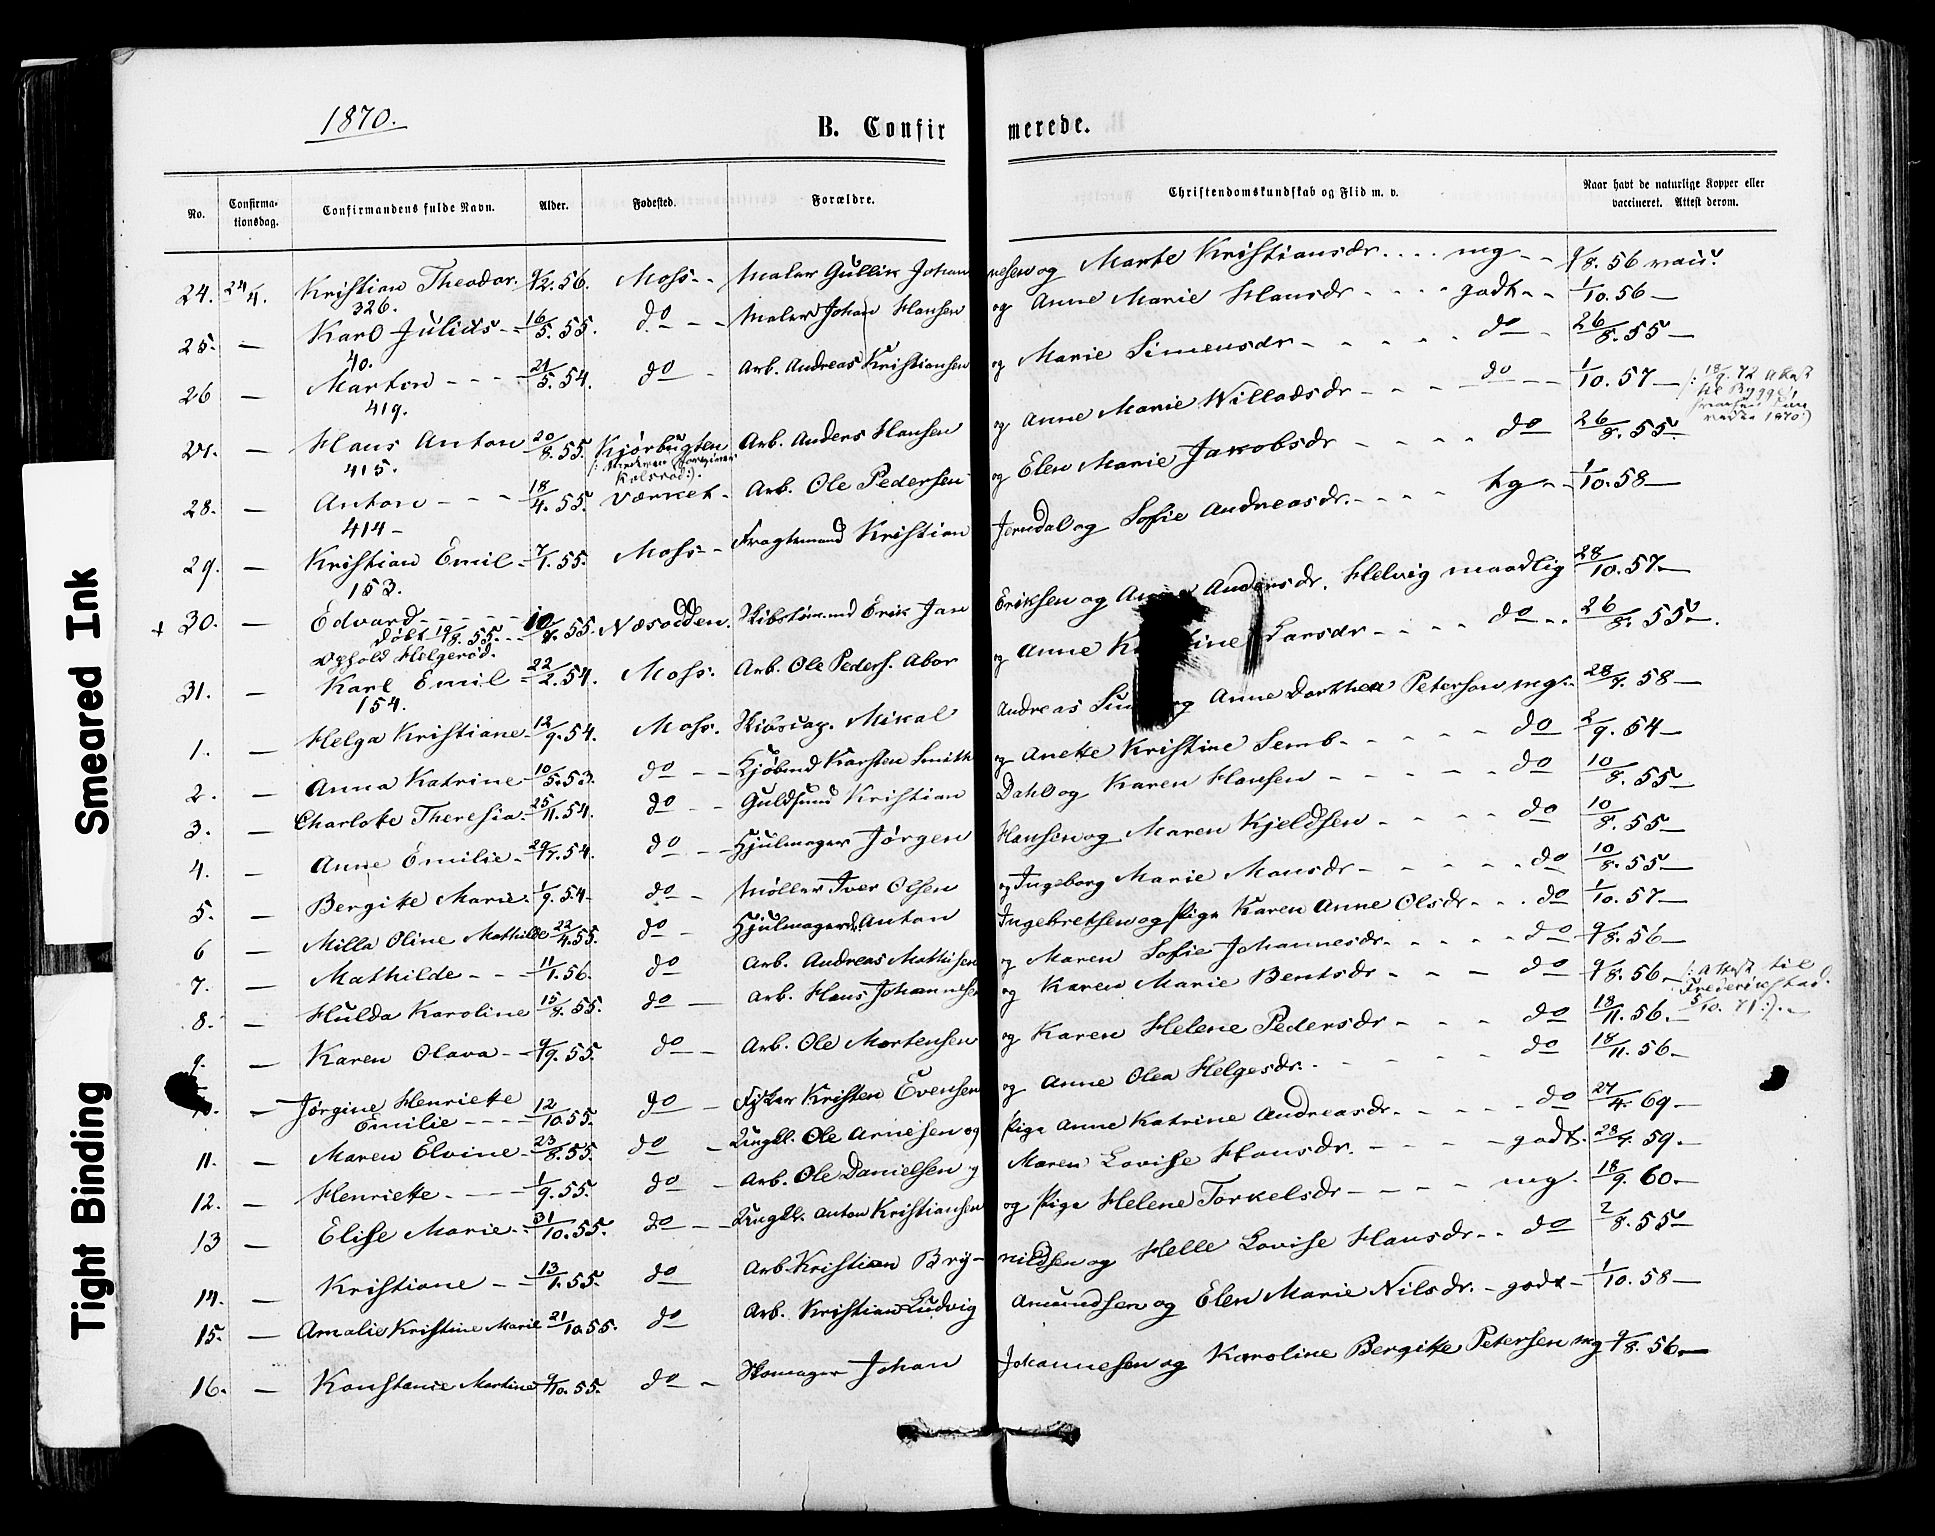 1870.
B. Confirmerede.
No. Confirmationsdag. Confirmandens fulde Navn. Alder. Fødested. Forældre. Christendomskundskab og Flid m. v. Naar havt de naturlige Kopper eller vaccineret. Attest derom.
24. 24/4. Kristian Theodor. 9/12.56. Moss - - Maler Gullik Johannesen og Marte Kristiansdr. . . . mg - - 9/8. 56 vacc.
326.
25. — Karl Julius - 16/5.55. do - - Maler Johan Hansen og Anne Marie Hansdr - - - - godt - - 1/10.56 —
40.
26 — Marton - - - 21/5.54. do - Arb. Andreas Kristiansen og Marie Simensdr - - - - do - 26/8.55 —
419.
27. — Hans Anton 20/8.55. Kjørbugten Arb. Anders Hansen og Anne Marie Willadsdr - - - do - - 1/10.57 — (: 18/9.72 Attest
415.
28. — Anton - - - 18/4.55. Værket - Arb. Ole Pedersen og Elen Marie Jakobsdr - - - - do 26/8.55.
414 —
29. — Kristian Emil - 7/1.55. Moss - Fragtemand Kristian Jerndal og Sofie Andreasdr. - - - - tg - - 1/10.58 —
153.
+ 30. — Edvard - - - 10/8.55 Næsodden. Skibstømmd Erik Jan Eriksen og Andersdr. Helvig maadlig 28/10.57. —
døbt 19/8.55. - -
Ophold Helgerød.
31. — Karl Emil - 22/2.54. Moss. Arb. Ole Peders. Abor og Anne Larsdr - - - - do - - 26/8.55 —.
154.
1. — Helga Kristiane - 12/9.54. Moss. Skibscap. Mikal Andreas og Anne Dorthea Peterson mg. - 28/7.58 —
2. — Anna Katrine - 10/5.53. do - - Kjøbmd Karsten Smith og Anette Kristine Semb - - - - - do 2/9.54 —
3. — Charlotte Theresia. 25/11.54. do - - Guldsmed Kristian Dahl og Karen Hansen - - - - - do 10/8.55 —
4. — Anne Emilie - 29/7.54. do - - Hjulmager Jørgen Hansen og Maren Kjeldsen - - - - do 10/8.55 —
5. — Bergitte Marie. 1/9.54 - do - Møller Iver Olsen og Ingeborg Marie Monsdr - - - - - do 10/8.55 —
6 — Milla Oline Mathilde 22/4.55. do - Hjulmagersv. Anton Ingebretsen og Pige Karen Anne Olsdr - - . do 1/10.57 —
7. — Mathilde - - - 11/1.56. do Arb. Andreas Mathisen og Maren Sofie Johannesdr - - - - - do 9/8.56 —
8. — Hulda Karoline 15/8.55. do — Arb. Hans Johannesen og Karen Marie Bentsdr - - - do 9/8.56 — (: Attest til Frederikstad. 5/10.71 :). -
9. — Karen Olava - - 9/9.55. do - Arb. Ole Mortensen og Karen Helene Pedersdr - - - do 18/11.56. —
10. — Jørgine Henriette Emilie - - - - 12/10.55. do - Fisker Kristen Evensen og Anne Olea Helgesdr. - - - - - do 18/11.56 —
11. — Maren Elvine - 23/8.55. do - Ungkl. Ole Arnesen og Pige Anne Katrine Andreasdr. - - - - do 27/4.69 —
12. — Henriette - - - - 1/9.55. do - Arb. Ole Danielsen og Maren Lovise Hansdr. - - - - godt. 28/7.59. —
13 — Elise Marie - - 31/10.55. do - - Ungkl. Anton Kristiansen og Pige Helene Torkelsdr - - - - mg. 18/9.60. —
14. — Kristiane - - 13/1.55. do Arb. Kristian Brynildsen og Helle Lovise Hansdr - - do 2/8.55 —
15. — Amalie Kristine Marie 21/10.55. do Arb. Kristian Ludvig Amundsen og Elen Marie Nilsdr. - godt - 1/10.58 —
16. — Konstance Martine 9/10.55. do - Skomager Johan Johannesen og Karoline Bergitte Petersen mg 9/8.56. —
Smeared Ink
Tight Binding